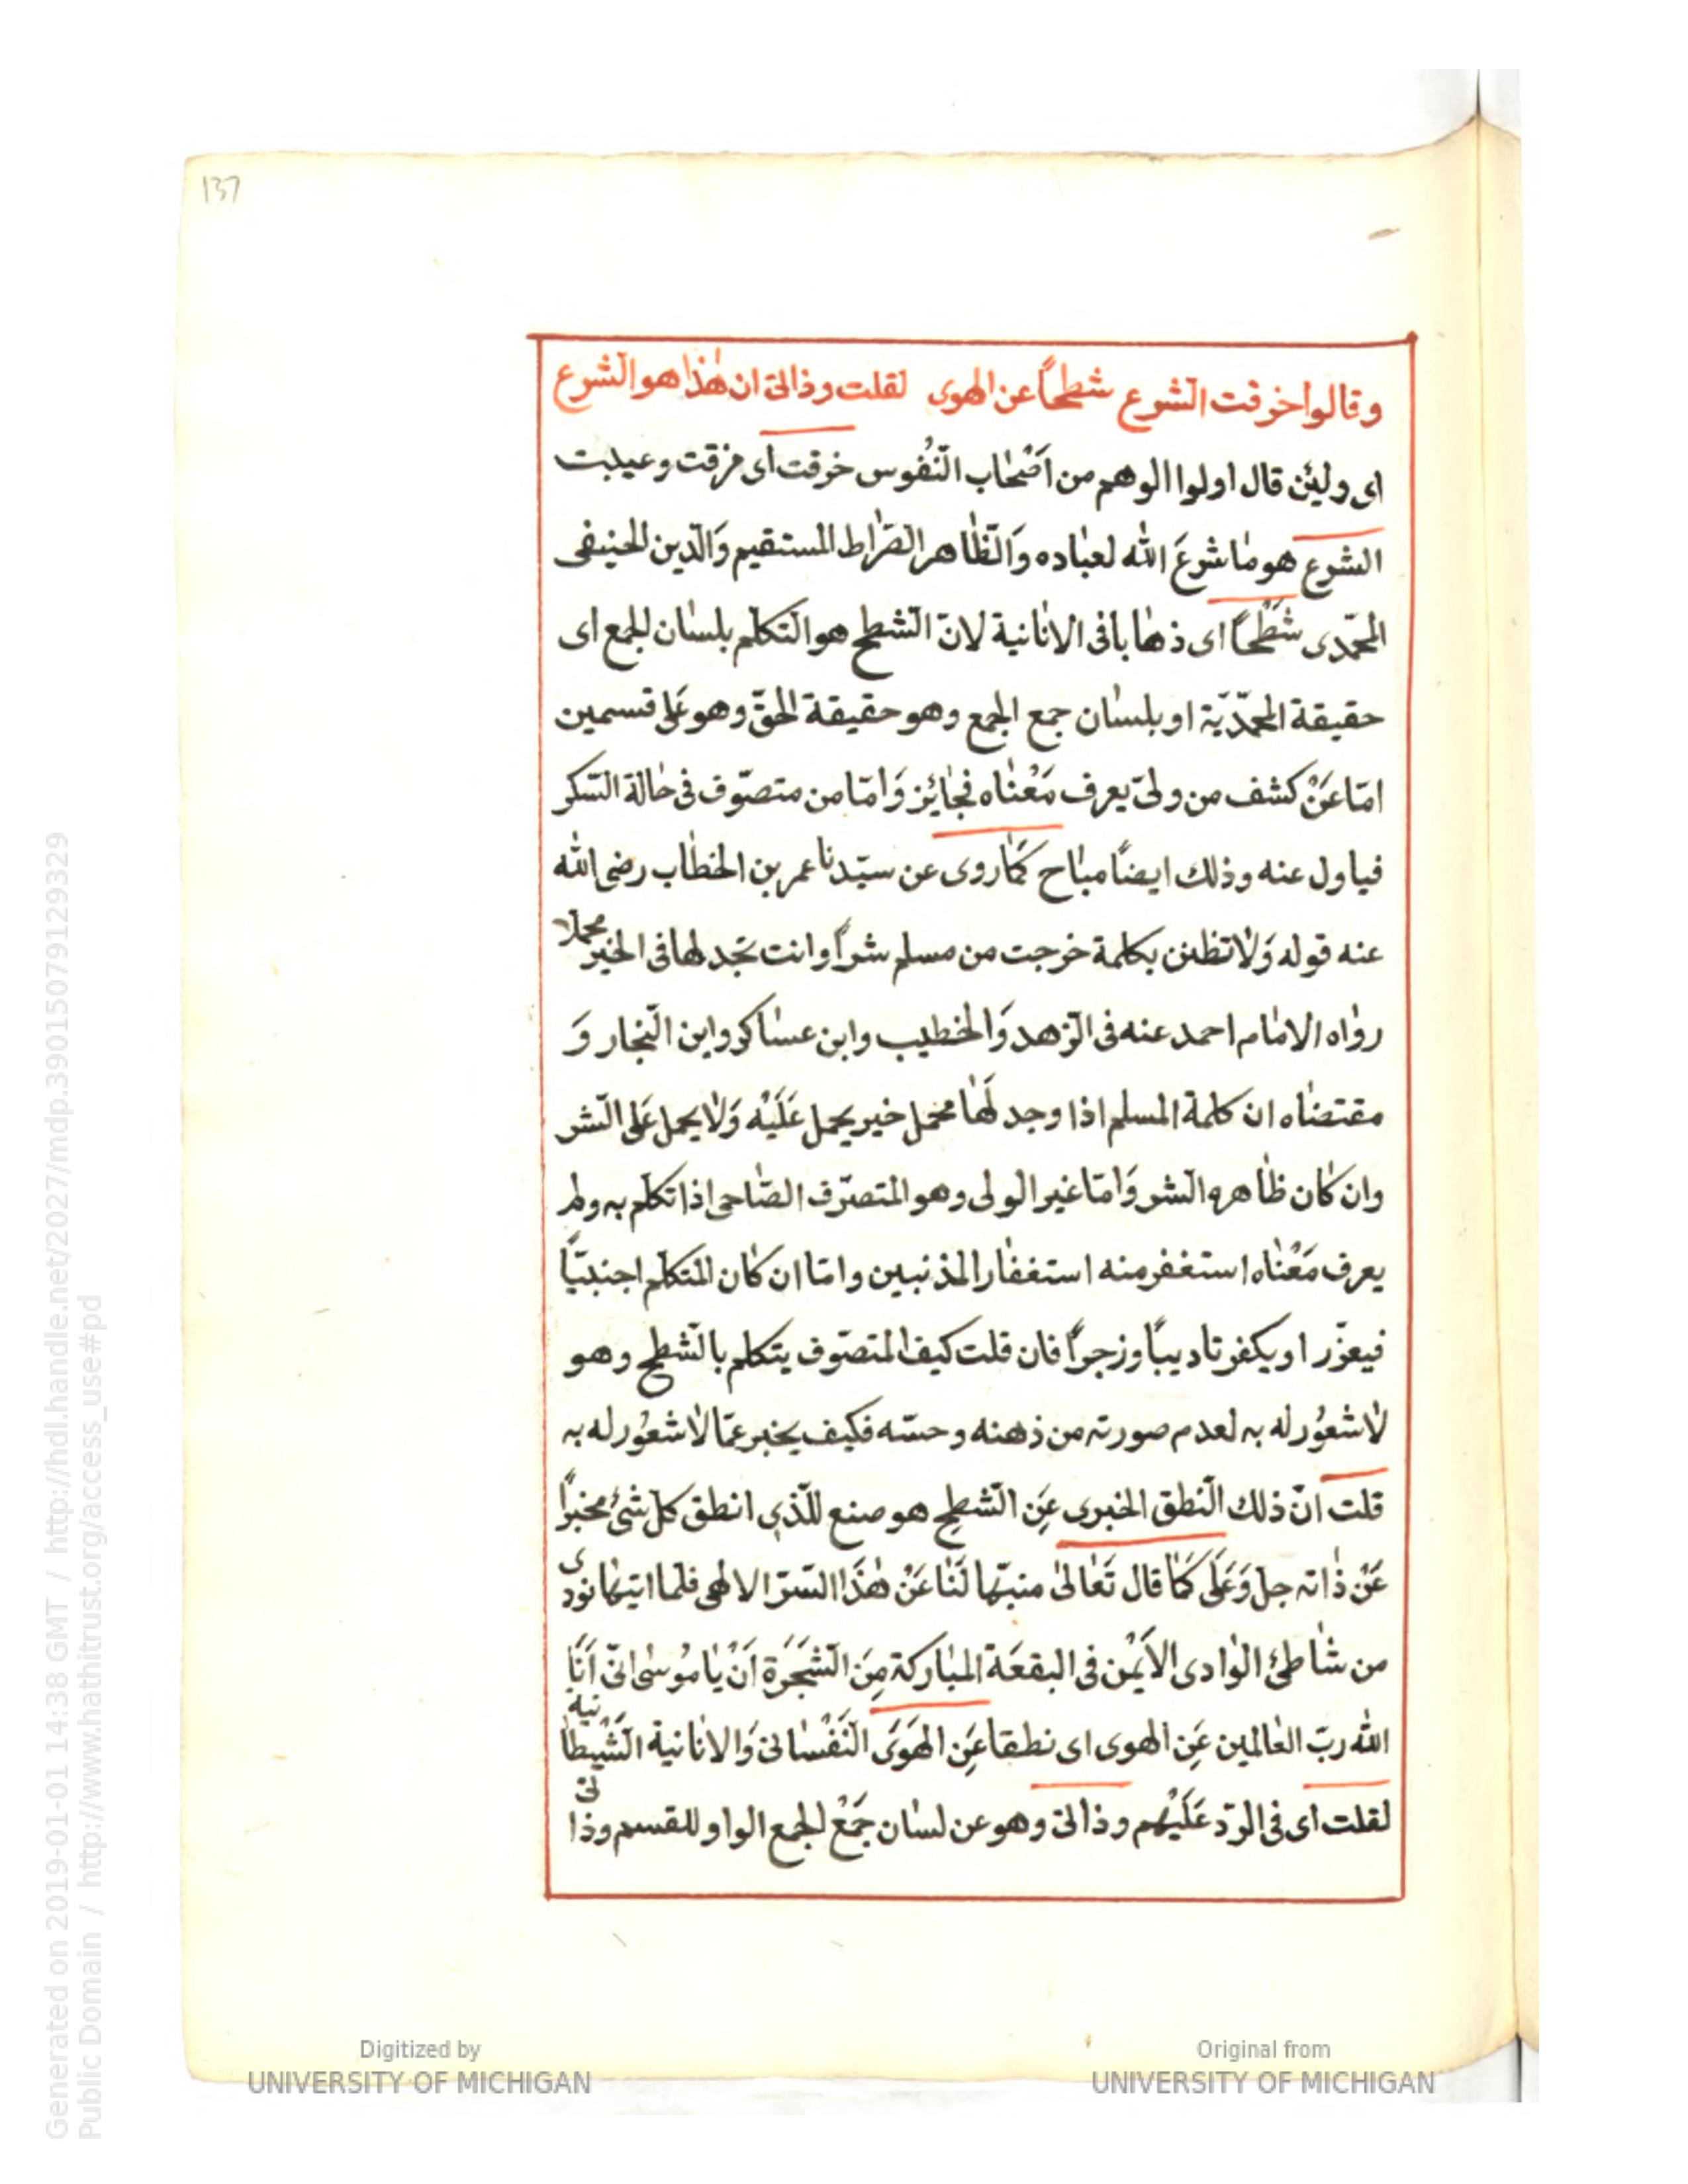 137
وقالوا خرقت الشرع شطحاً عن الهوى لقلت وذاتى ان هٰذا هو الشرع
اى ولئن قال اولوا الوهم من اَصْحٰاب النّفُوس خرقت اى مزقت وعيبت
الشرع هو مٰا شرعَ الله لعبٰاده وَالظّٰاهر الصّرٰاط المستقيم وَالّدين الحنيفى
المحمّدى شَطْحاً اى ذهٰابا فى الانٰانية لانّ الشّطح هو التّكلّم بلسٰان الجمع اى
حقيقة المحمّديّة او بلسٰان جمع الجمع وهو حقيقة الحقّ وهو عَلى قسمين
امّا عَنْ كشف من ولىّ يعرف مَعْنٰاه فجٰائز وَامّا من متصوّف فى حٰالة السّكر
فياول عنه وذلك ايضاً مبٰاح كمٰا روى عن سيّدنا عمر بن الخطّاب رضى الله
عنه قوله وَلٰا تظنن بكلمة خرجت من مسلم شراً وانت تجد لها فى الخير محملا
روٰاه الامٰام احمد عنه فى الزّهد وَالخطيب وابن عسٰاكر وابن النّجار وَ
مقتضٰاه ان كلمة المسلم اذا وجد لَهٰا محمل خير يحمل عَلَيْه وَلٰا يحمل عَلى الشّر
وان كٰان ظٰاهره الشر وَامّا غير الولى وهو المتصرّف الصّٰاحى اذا تكلّم به ولم
يعرف مَعْنٰاه استغفر منه استغفٰار المذنبين وامّا ان كٰان المتكلّم اجنبيّاً
فيعزّر او يكفر تاديباً وزجراً فان قلت كيف المتصوّف يتكلم بالشّطح وهو
لٰا شعُور له به لعدم صورته من ذهنه وحسّه فكيف يخبر عمّا لٰا شعُور له به
قلت انّ ذلك النّطق الخبرى عَنِ الشّطح هو صنع للّذى انطق كلّ شئ مخبراً
عَنْ ذٰاته جلّ وَعَلَى كمٰا قال تَعٰالىٰ منبّها لَنٰا عَنْ هٰذَا السّرّ الالهى فلما اتيها نودى
من شٰاطئ الوٰادى الاَيْمن فى البقعَة المبٰاركة مِنَ الشّجَرَة اَنْ يٰا مُوسٰى انّى اَنَا
الله ربّ العٰالمين عَنِ الهوى اى نطقا عَنِ الهَوَى النَّفْسٰانى وَالانٰانية الشّيْطانيه
لقلت اى فى الرّد عَلَيْهم وذاتى وهو عن لسٰان جَمْع الجمع الواو للقسم وذاتى
Digitized by
UNIVERSITY OF MICHIGAN
Original from
UNIVERSITY OF MICHIGAN
Generated on 2019-01-01 14:38 GMT / http://hdl.handle.net/2027/mdp.39015079129329
Public Domain / http://www.hathitrust.org/access_use#pd